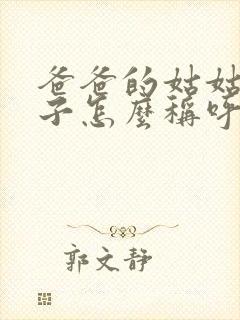 爸爸的姑姑
子怎麼稱呼
郭文靜